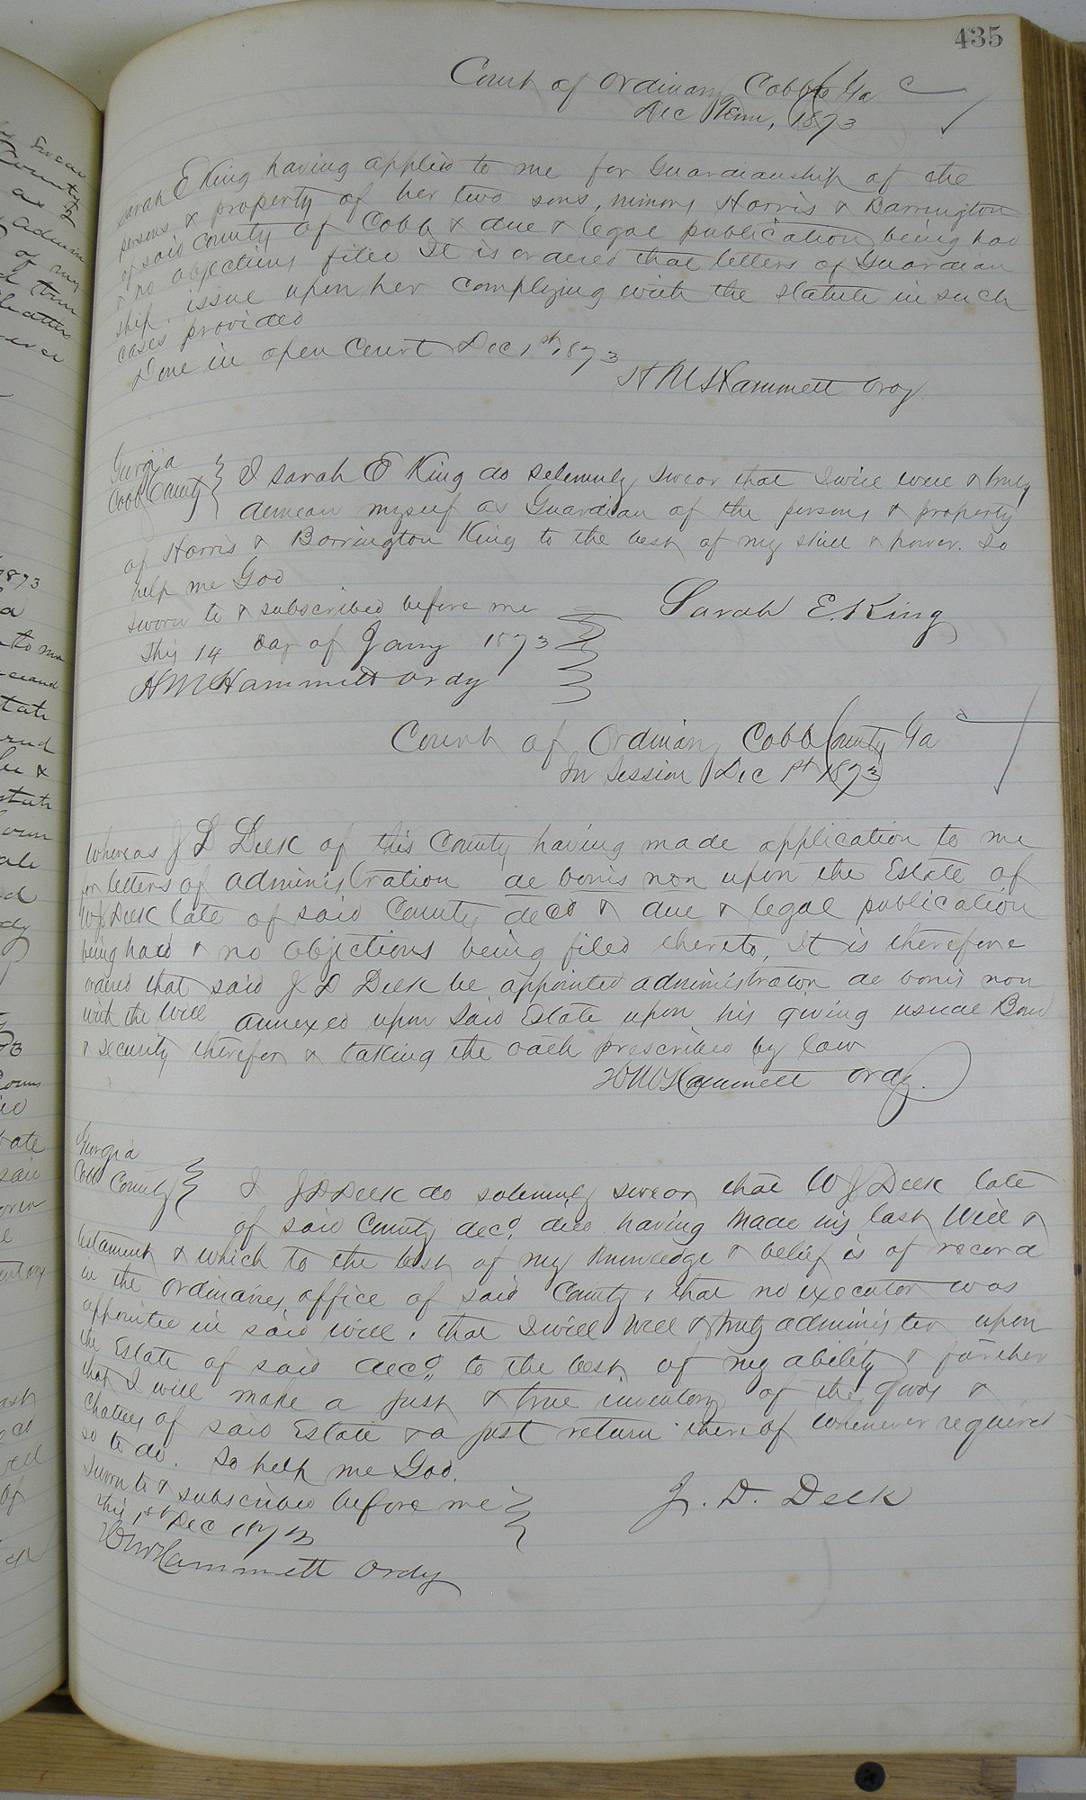 435
Court of Ordinary Cobb Co Ga
Dec Term, 1873
Sarah E King having applied to me for Guardianship of the
persons & property of her two sons, minors Harris & Barrington
of said County of Cobb & due & legal publication being had
& no objections filed It is ordered that letters of Guardian
ship issue upon her complying with the Statute in such
cases provided
Done in open Court Dec 1st 1873
H M Hammett Ordy
Georgia
Cobb County
I Sarah E King do solemnly swear that I will well & truly
demean myself as Guardian of the persons & property
of Harris & Barrington King to the best of my skill & power. So
help me God
Sworn to & subscribed before me
this 14 day of Jany 1873
Sarah E. King
H M Hammett Ordy
Court of Ordinary Cobb County Ga
In Session Dec 1st 1873
Whereas J D Delk of this County having made application to me
for letters of administration de bonis non upon the Estate of
W J Delk late of said County decd & due & legal publication
being had & no objections being filed thereto, It is therefore
ordered that said J D Delk be appointed administrator de bonis non
with the Will annexed upon said Estate upon his giving usual Bond
& security therefor & taking the oath prescribed by law
H M Hammett Ordy.
Georgia
Cobb County
I J D Delk do solemnly swear that W J Delk late
of said County decd. died having made his last Will &
testament & which to the best of my knowledge & belief is of record
in the Ordinaries office of said County, that no executor was
appointed in said will, that I will well & truly administer upon
the Estate of said decd. to the best of my ability & further
that I will make a just & true inventory of the goods &
Chattles of said Estate & a just return thereof whenever required
so to do. So help me God.
Sworn to & subscribed before me
this 1st Dec 1873
J. D. Delk
H M Hammett Ordy